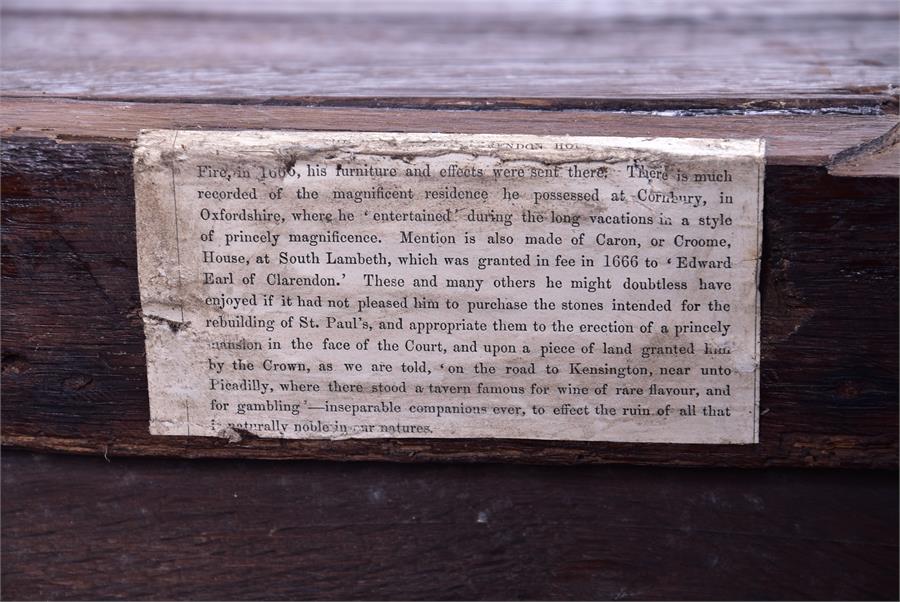 RENDON HO
Fire, in 1666, his furniture and effects were sent there. There is much
recorded of the magnificent residence he possessed at Cornbury, in
Oxfordshire, where he ‘ entertained ’ during the long vacations in a style
of princely magnificence. Mention is also made of Caron, or Croome,
House, at South Lambeth, which was granted in fee in 1666 to ‘ Edward
Earl of Clarendon.’ These and many others he might doubtless have
enjoyed if it had not pleased him to purchase the stones intended for the
rebuilding of St. Paul’s, and appropriate them to the erection of a princely
mansion in the face of the Court, and upon a piece of land granted him
by the Crown, as we are told, ‘on the road to Kensington, near unto
Picadilly, where there stood a tavern famous for wine of rare flavour, and
for gambling ’—inseparable companions ever, to effect the ruin of all that
is naturally noble in our natures.